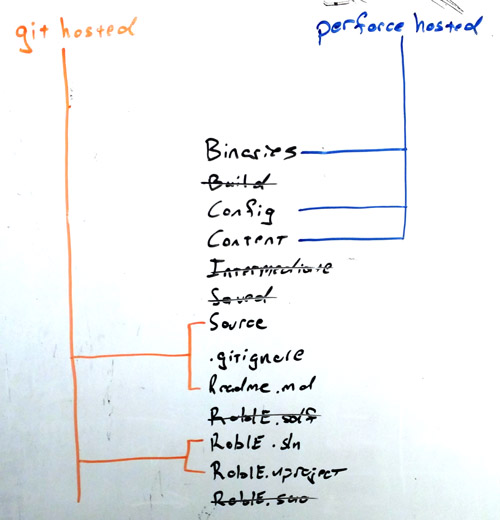 git hosted
perforce hosted
Binaries
Build
Config
Content
Intermediate
Saved
Source
.gitignore
Readme.md
RoblE.sdf
RoblE.sln
RoblE.uproject
RoblE.suo